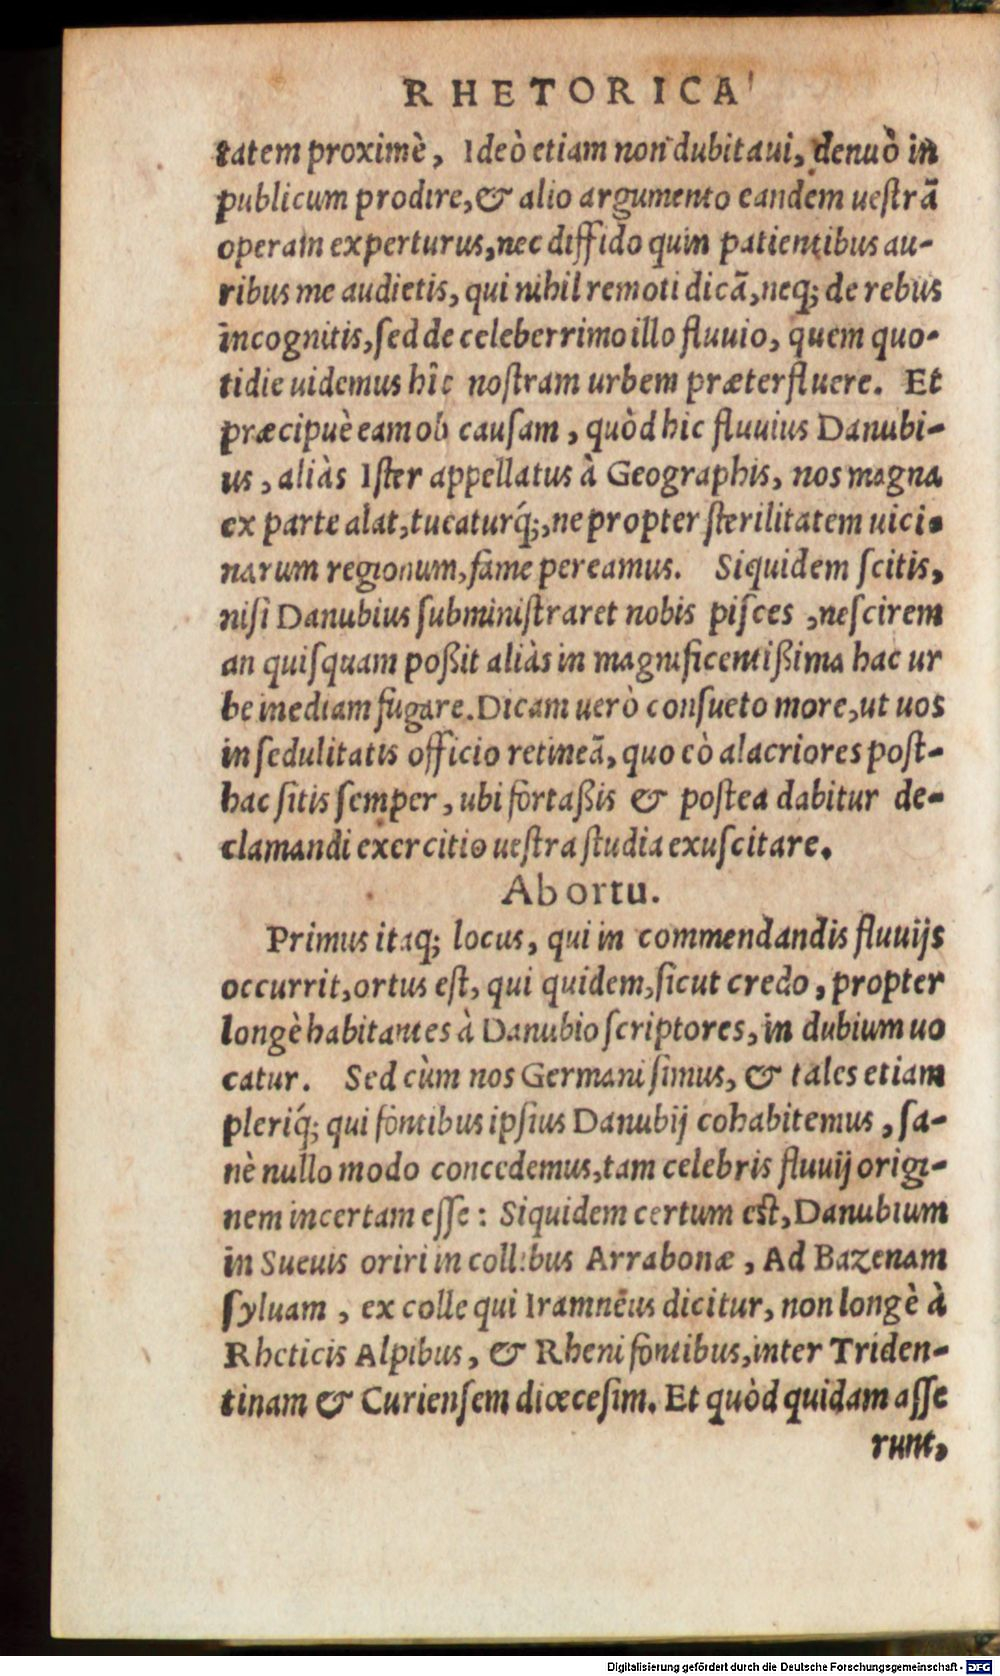 RHETORICA
tatem proximè, Ideò etiam non dubitaui, denuò in
publicum prodire, & alio argumento eandem ueſtrã
operam experturus, nec diffido quin patientibus au-
ribus me audietis, qui nihil remoti dicã, neq; de rebus
incognitis, ſed de celeberrimo illo fluuio, quem quo-
tidie uidemus hîc noſtram urbem præterfluere. Et
præcipuè eam ob cauſam, quòd hic fluuius Danubi-
us, aliàs Iſter appellatus à Geographis, nos magna
ex parte alat, tueaturq́;, ne propter ſterilitatem uici-
narum regionum, fame pereamus. Siquidem ſcitis,
niſi Danubius ſubminiſtraret nobis piſces, neſcirem
an quiſquam poßit aliàs in magnificentißima hac ur
be inediam fugare. Dicam uerò conſueto more, ut uos
in ſedulitatis officio retineã, quo eò alacriores poſt-
hac ſitis ſemper, ubi fortaßis & poſtea dabitur de-
clamandi exercitio ueſtra ſtudia exuſcitare.
Ab ortu.
Primus itaq; locus, qui in commendandis fluuijs
occurrit, ortus eſt, qui quidem, ſicut credo, propter
longè habitantes à Danubio ſcriptores, in dubium uo
catur. Sed cùm nos Germani ſimus, & tales etiam
pleriq́; qui fontibus ipſius Danubij cohabitemus, ſa-
nè nullo modo concedemus, tam celebris fluuij origi-
nem incertam eſſe: Siquidem certum eſt, Danubium
in Sueuis oriri in collibus Arrabonæ, Ad Bazenam
ſyluam, ex colle qui Iramnẽus dicitur, non longè à
Rheticis Alpibus, & Rheni fontibus, inter Triden-
tinam & Curienſem diœceſim. Et quòd quidam aſſe
runt,
Digitalisierung gefördert durch die Deutsche Forschungsgemeinschaft - DFG